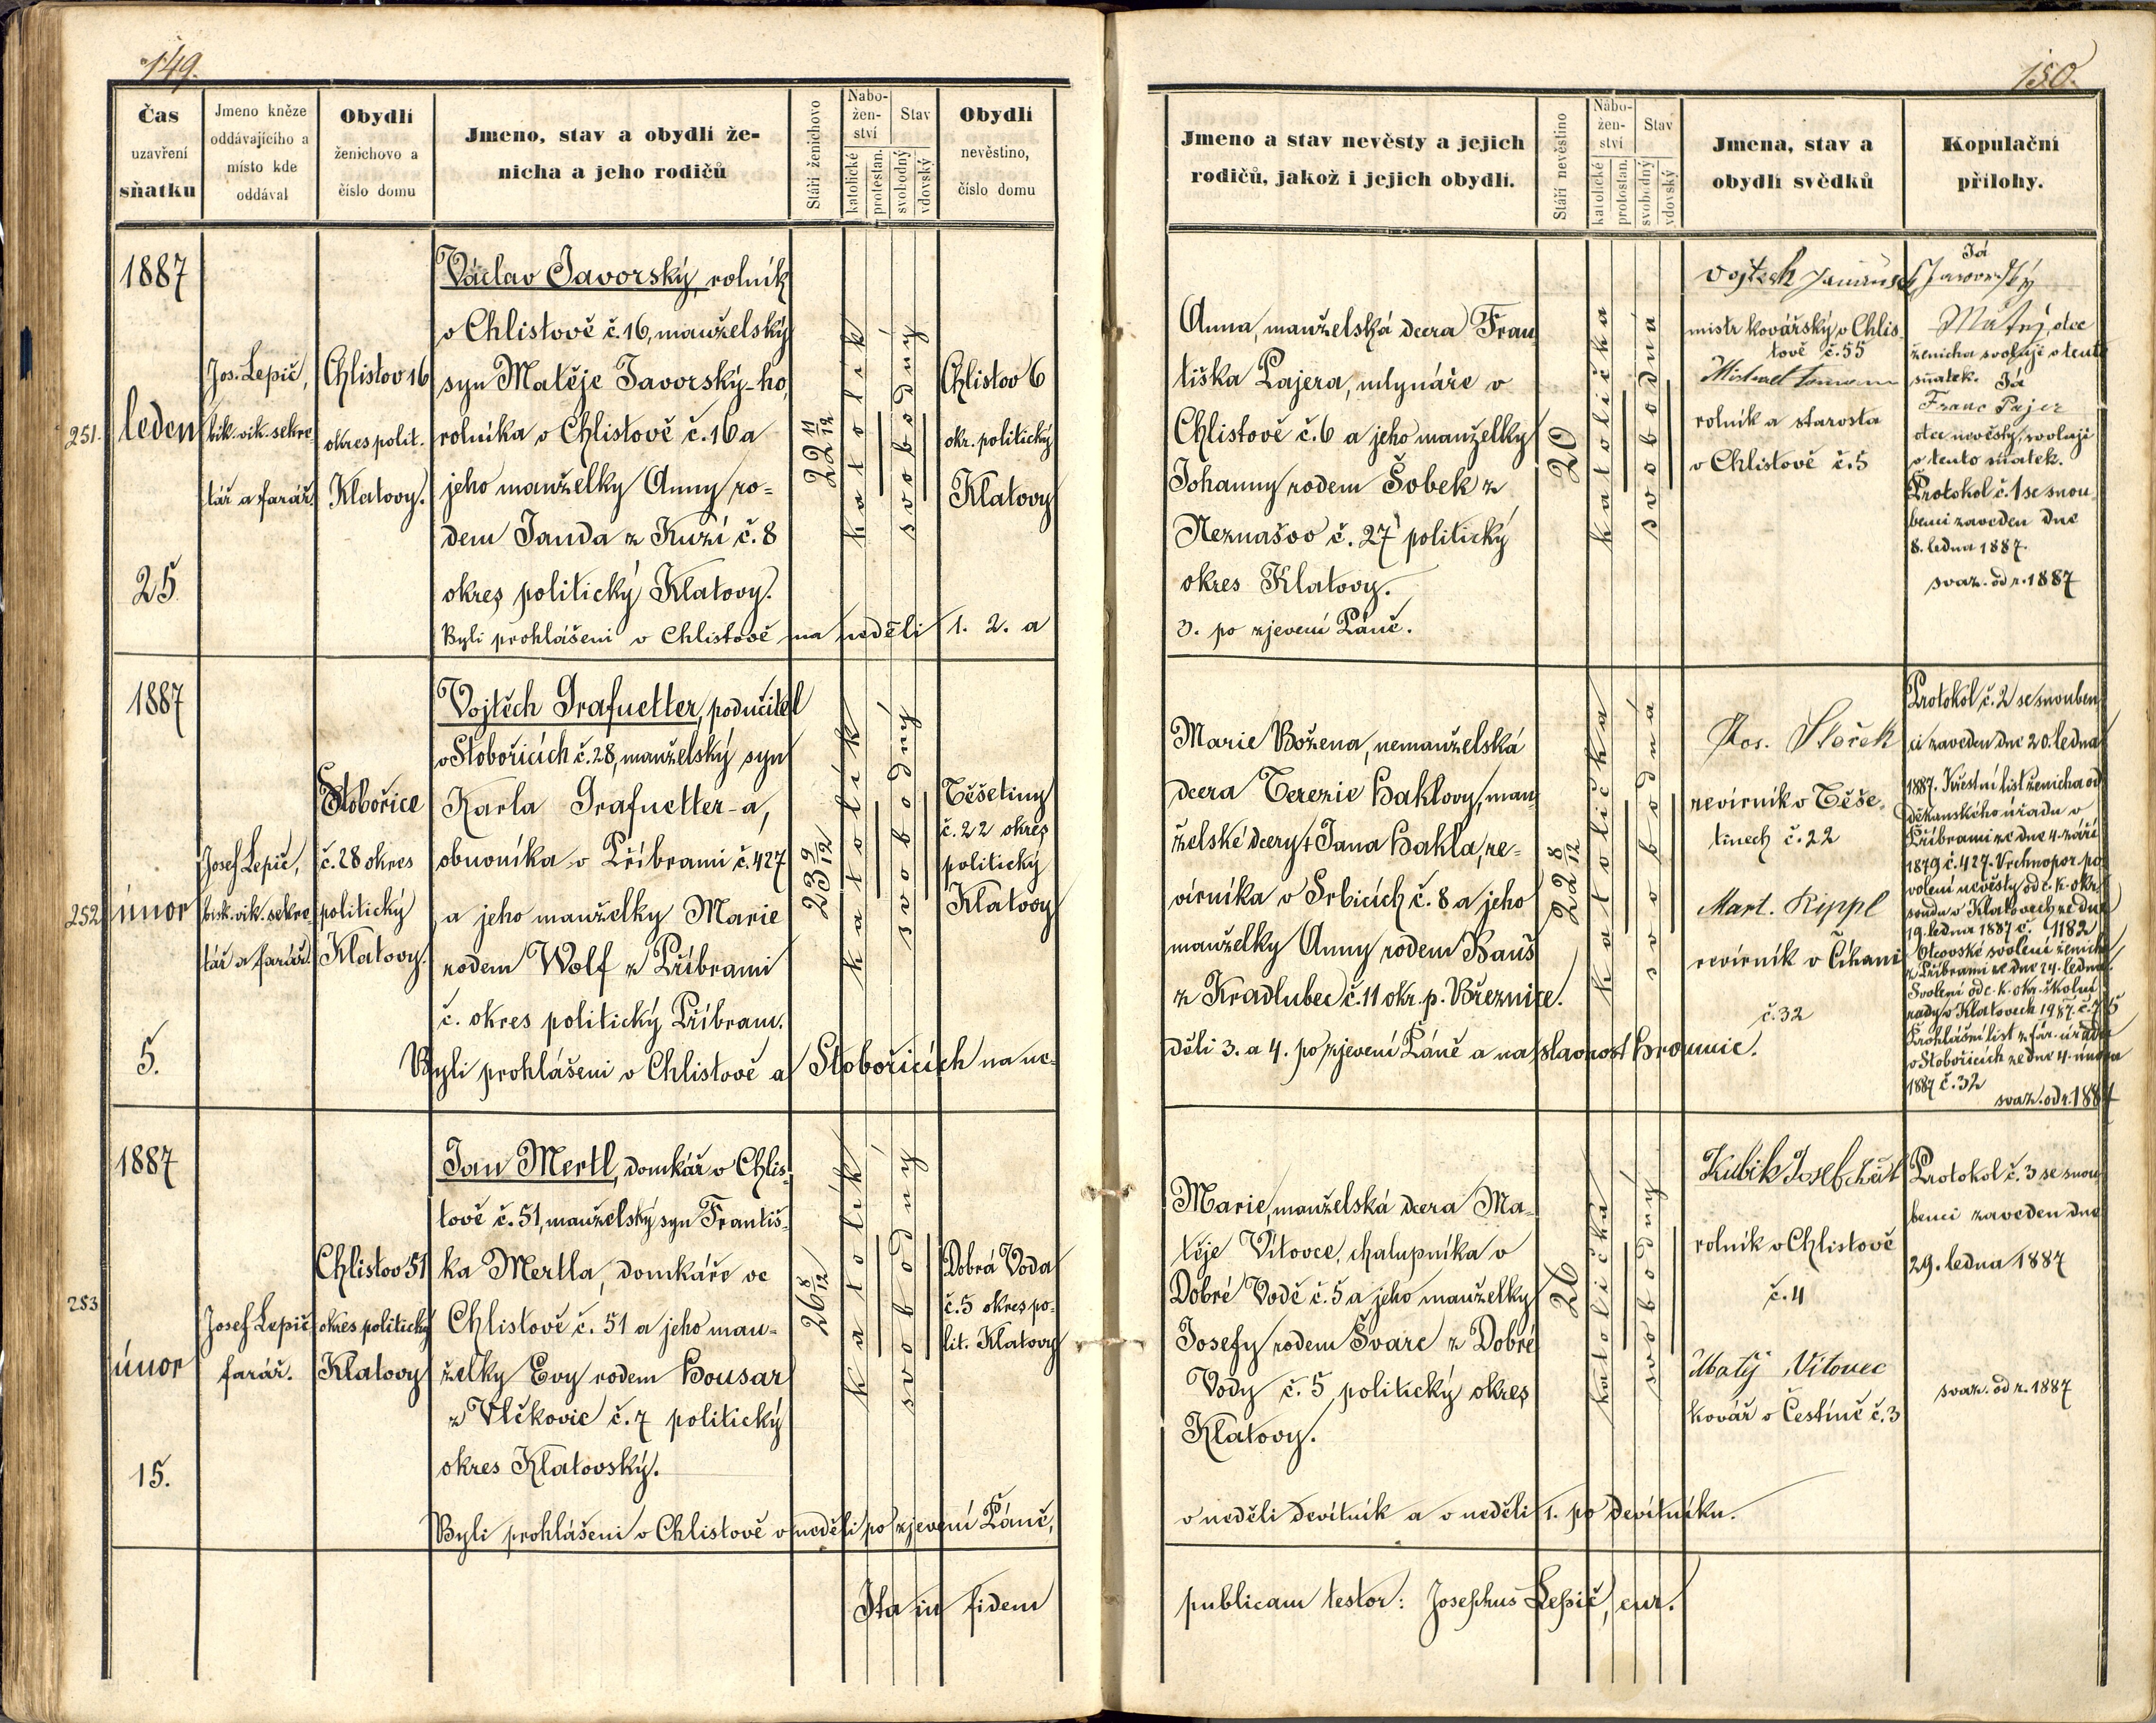 149.
Čas
uzavření
sňatku
Jmeno kněze
oddávajícího a
místo kde
oddával
Obydlí
ženichovo a
číslo domu
Jmeno, stav a obydlí že-
nicha a jeho rodičů
Stáří ženichovo
Nabo-
žen-
ství
katolické
protestan.
Stav
svobodný
vdovský
Obydlí
nevěstino,
číslo domu
251.
1887
leden
25
Jos. Lepič,
bik. vik. sekre-
tář a farář.
Chlistov 16
okres polit.
Klatovy.
Václav Javorský, rolník
v Chlistově č. 16, manželský
syn Matěje Javorský-ho,
rolníka v Chlistově č. 16 a
jeho manželky Anny ro-
dem Janda z Kuzí č. 8
okres politický Klatovy.
22 11/12
katolík
svobodný
Chlistov 6
okr. politický
Klatovy
Byli prohlášeni v Chlistově na neděli 1. 2. a
252
1887
únor
5.
Josef Lepič,
bisk. vik. sekre-
tář a farář.
Stobořice
č. 28 okres
politický
Klatovy.
Vojtěch Grafnetter, podučitel
v Stobořicích č. 28, manželský syn
Karla Grafnetter-a,
obuvníka v Příbrami č. 427
a jeho manželky Marie
rodem Wolf z Příbrami
č. okres politický Příbram.
23 9/12
katolík
svobodný
Těšetiny
č. 22 okres
politický
Klatovy
Byli prohlášeni v Chlistově a Stobořicích na ne-
253
1887
únor
15.
Josef Lepič
farář.
Chlistov 51
okres politický
Klatovy
Jan Mertl, domkář v Chlis-
tově č. 51, manželský syn Františ-
ka Mertla, domkáře ve
Chlistově č. 51 a jeho man-
želky Evy rodem Housar
z Vlčkovic č. 7 politický
okres Klatovský.
26 8/12
katolík
svobodný
Dobrá Voda
č. 5 okres po-
lit. Klatovy
Byli prohlášeni v Chlistově v neděli po zjevení Páně,
Ita in fidem
150.
Jmeno a stav nevěsty a jejich
rodičů, jakož i jejich obydlí.
Stáří nevěstino
Nábo-
žen-
ství
katolické
protestan.
Stav
svobodný
vdovský
Jmena, stav a
obydlí svědků
Kopulační
přílohy.
Anna, manželská dcera Fran-
tiška Pajera, mlynáře v
Chlistově č. 6 a jeho manželky
Johanny rodem Šobek z
Neznašov č. 27 politický
okres Klatovy.
3. po zjevení Páně.
20
katolička
svobodná
Vojtech
mistr kovářský v Chlis-
tově č. 55
Michael
rolník a starosta
v Chlistově č. 5
Já
Javorský
Matěj, otec
ženicha svoluji v tento
sňatek. Já
Franc Pajer
otec nevěsty, svoluji
v tento sňatek.
Protokol č. 1 se snou-
benci zaveden dne
8. ledna 1887.
svaz. od r. 1887
Marie Božena, nemanželská
dcera Terezie Haklovy, man-
želské dcery † Jana Hakla, re-
vírníka v Srbicích č. 8 a jeho
manželky Anny rodem Bauš
z Hradlubec č. 11 okr. p. Březnice.
děli 3. a 4. po zjevení Páně a na slavnost Hromnic.
22 8/12
katolička
svobodná
Jos.
revírník v Těše-
tinech č. 22
Mart. Rippl
revírník v Číkani
č. 32
Protokol č. 2 se snouben-
ci zaveden dne 20. ledna
1887. Křestní list ženicha od
děkanského úřadu v
Příbrami ze dne 4. září
1879 č. 427. Vrchnopor. po-
volení nevěsty od c. k. okr.
soudu v Klatovech ze dne
19. ledna 1887 č. 1182
Otcovské svolení ženicha
z Příbrami ze dne 24. ledna.
Svolení od c. k. okr. školní
rady v Klatovech 1987. č.
Prohlášní list z far. úřadu
v Stobořicích ze dne 4. února
1887 č. 32
svaz. od r. 1887
Marie, manželská dcera Ma-
těje Vítovce, chalupníka v
Dobré Vodě č. 5 a jeho manželky
Josefy rodem Švarc z Dobré
Vody č. 5 politický okres
Klatovy.
v neděli Devítník a v neděli 1. po Devítníku.
26
katolička
svobodný
Kubik Josef
rolník v Chlistově
č. 4
Matěj Vitovec
kovář v Čestíně č. 3
Protokol č. 3 se snou-
benci zaveden dne
29. ledna 1887
svaz. od r. 1887
publicam testor: Josephus Lepič, cur.